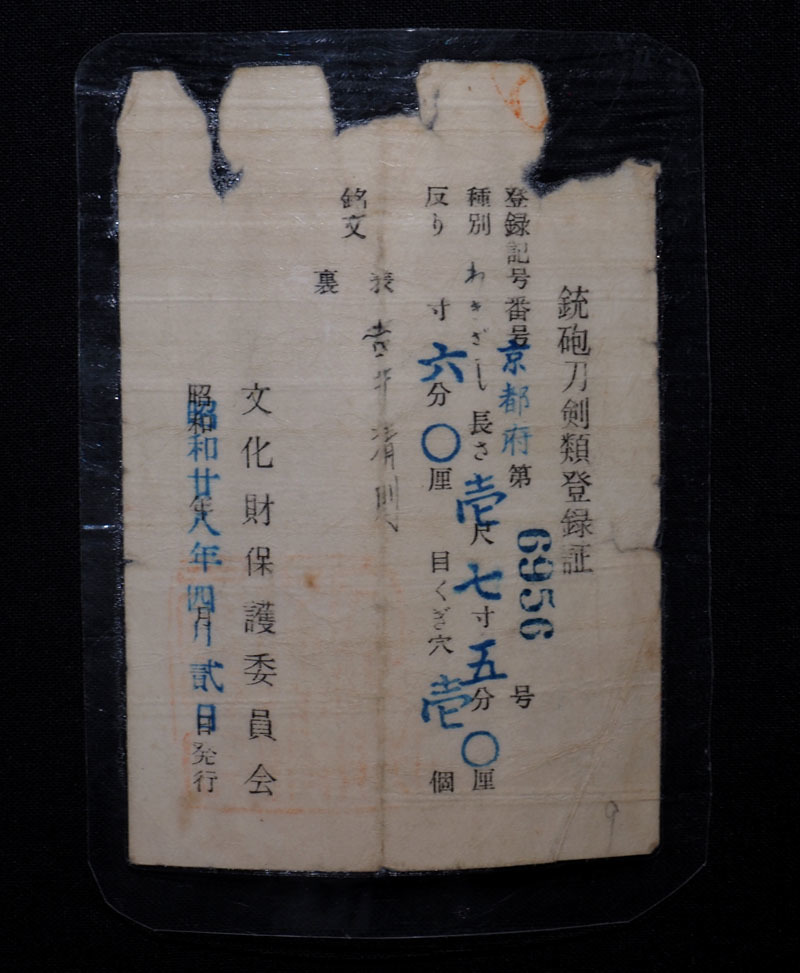 銃砲刀剣類登録証
登録記号番号京都府第6956号
種別わきざし長さ壱尺七寸五分〇厘
反り寸六分〇厘目くぎ穴壱個
銘文表
清則
裏
文化財保護委員会
昭和廿八年四月貳日発行